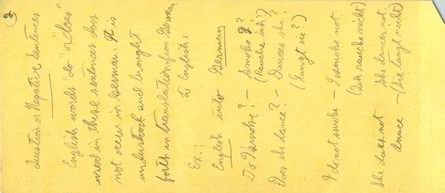 3
Question or Negative Sentences
English words "do" or "does"
used in these sentences does
not occur in German. It is
understood and brought
forth in translation from German
to English:
Ex.:
English into German
Do I smoke? – Smoke I?
(Rauche ich?)
Does she dance? – Dances she?
(Tanzt sie?)
I do not smoke – I smoke not
(Ich rauche nicht)
She does not dance – She dances not
(Sie tanzt nicht)